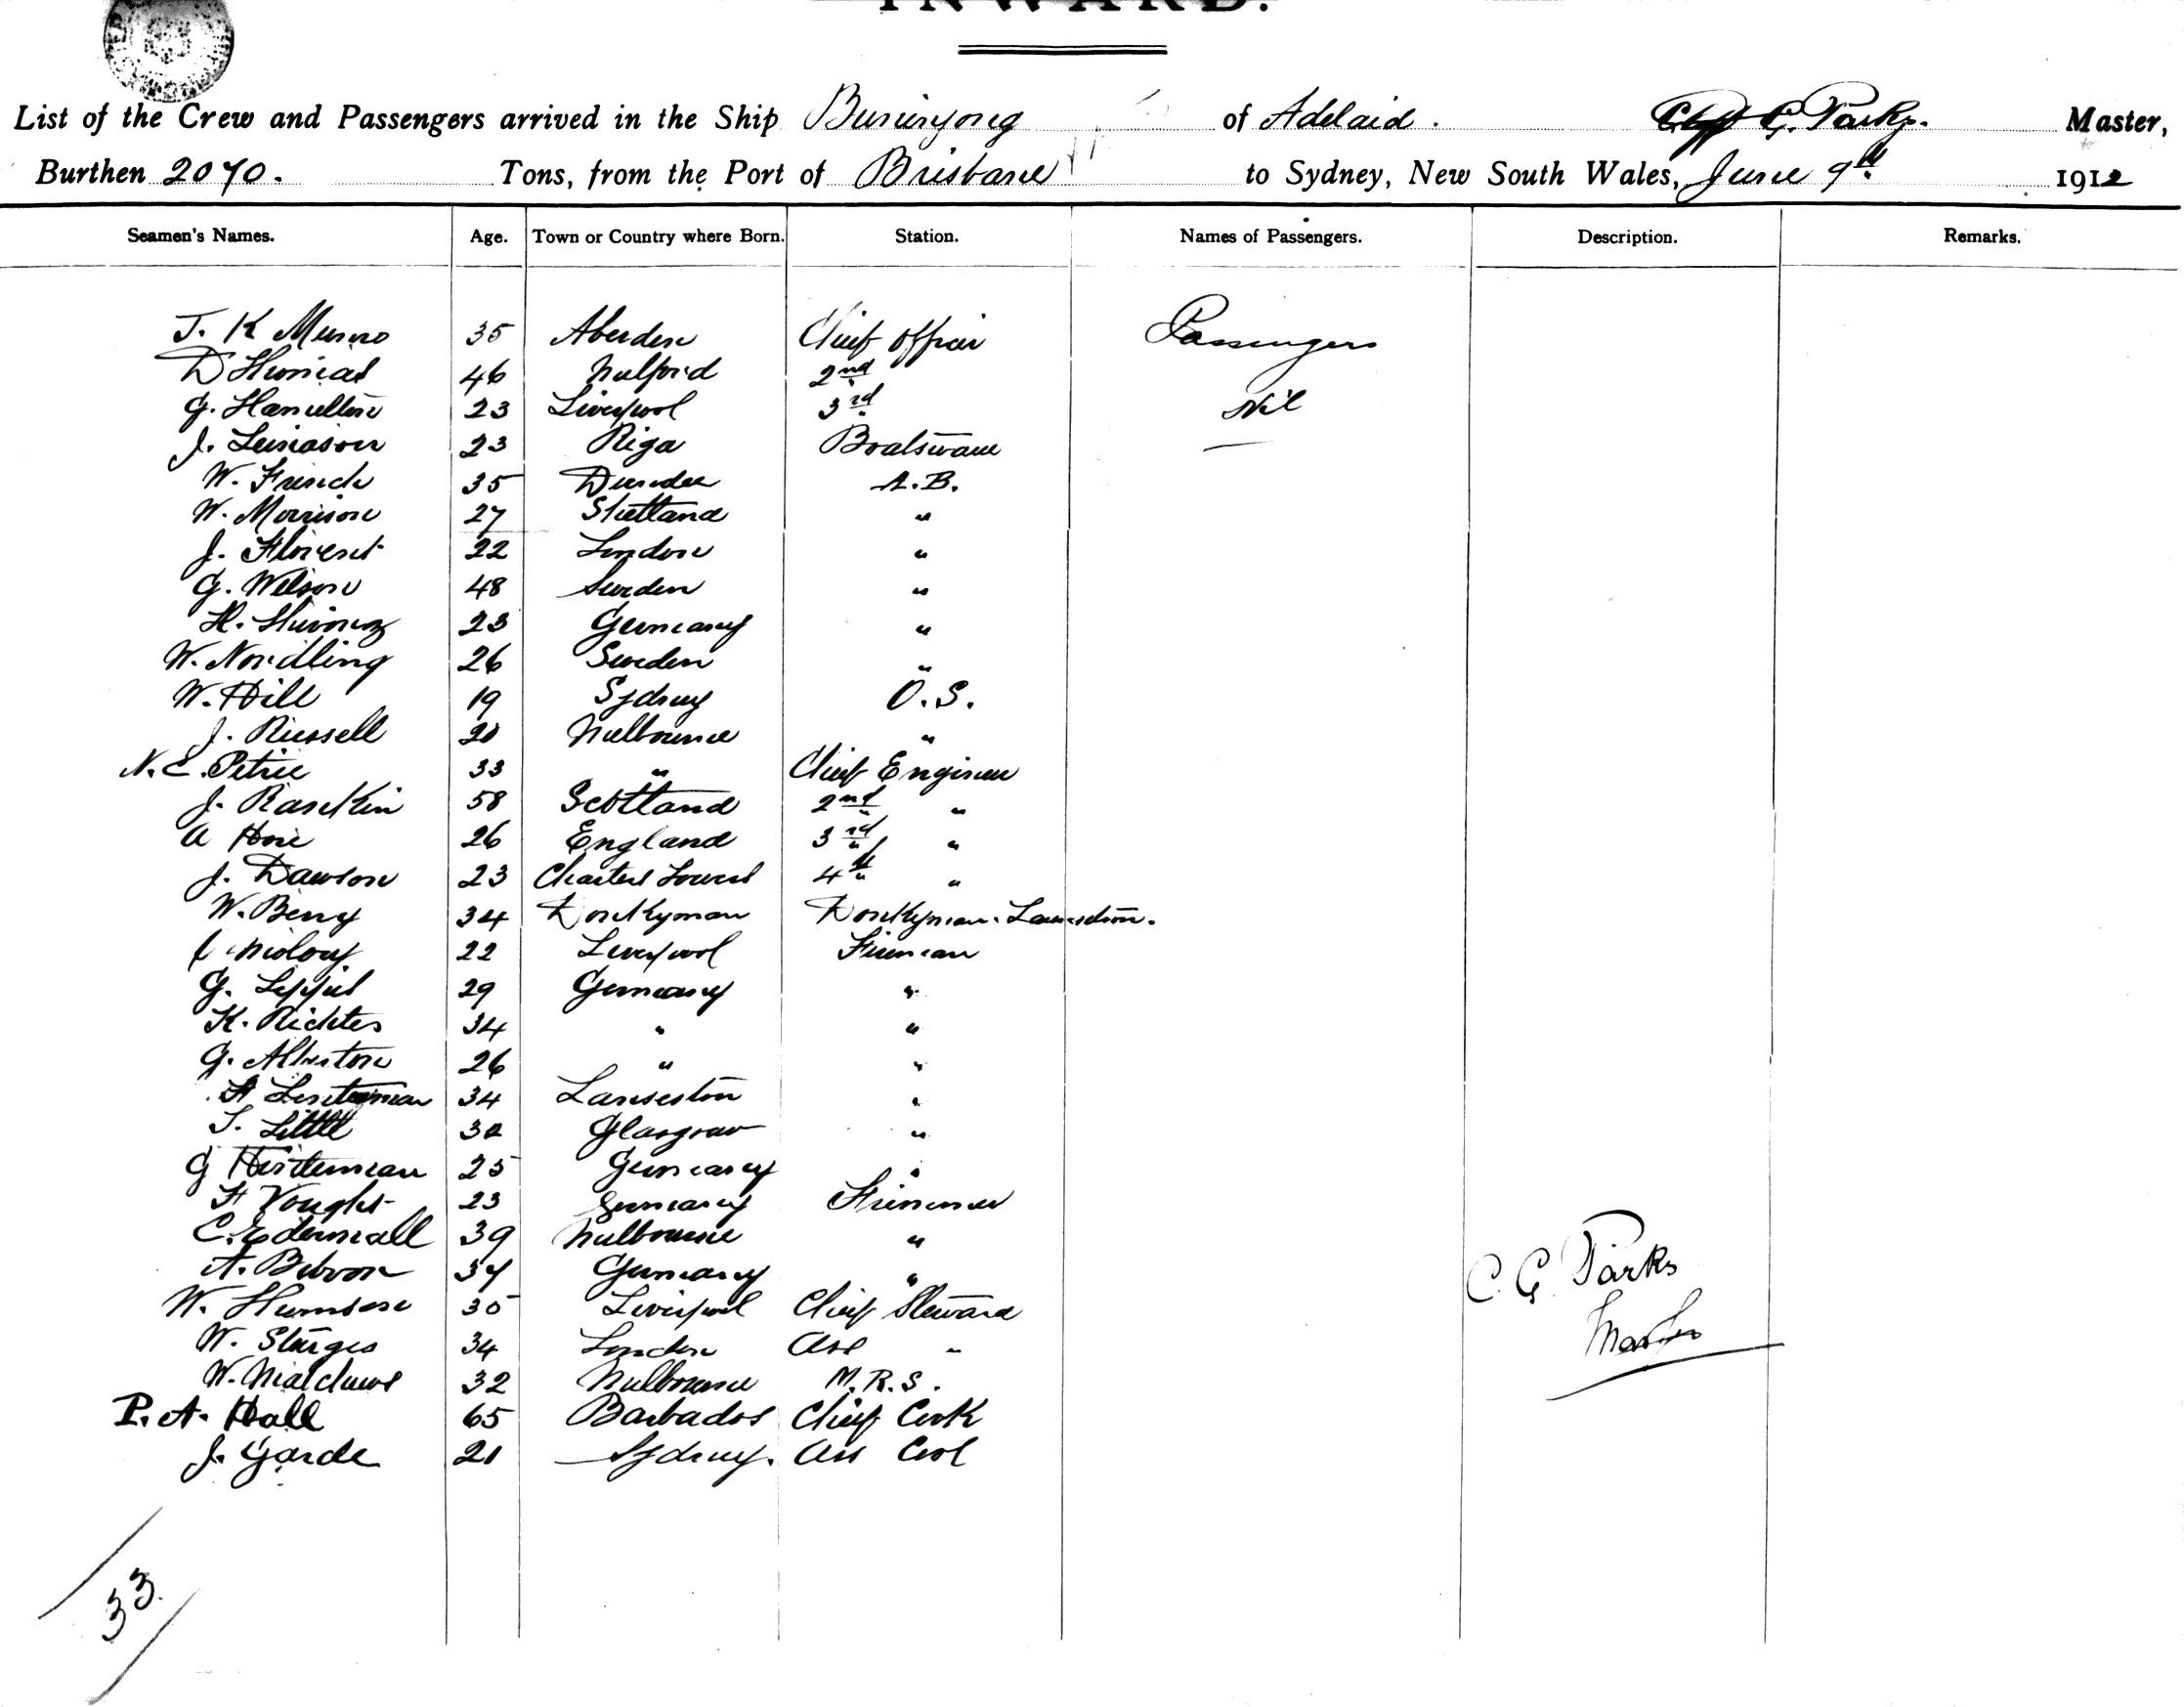 INWARD.
List of the Crew and Passengers arrived in the Ship Buninyong of Adelaid. C. G. Parks. Master,
Burthen 2070. Tons, from the Port of Brisbane to Sydney, New South Wales, June 9th 1912
Seamen's Names. Age. Town or Country where Born. Station. Names of Passengers. Description. Remarks.
J. K Munro 35 Aberden Chief Officer Passengers
D 46 Milford 2nd
G. Hamilton 23 Liverpool 3rd Nil
J. 23 Riga Boatswain
W. French 35 Dundee A.B.
W. Morrison 27 Shetland "
J. Florent 22 London "
G. Wilson 48 Sweden "
H. 23 Germany "
W. Nordling 26 Sweden "
W. Hill 19 Sydney O.S.
J. Russell 20 Melbourne "
N. E. Petrie 33 " Chief Engineer
J. Rankin 58 Scotland 2nd "
A Hore 26 England 3rd "
J. Dawson 23 Charters Towers 4th "
W. Berry 34 Donkyman Donkyman. Launseston.
Moloy 22 Liverpool Fireman
G. 29 Germany "
K. Richter 34 " "
G. 26 " "
F 34 Lanseston "
T. Little 32 Glasgow "
G 25 Germany "
F Vought 23 Germany Trimmer
C. Edermall 39 Melbourne "
A. 34 Germany "
W. 35 Liverpool Chief Steward
W. Sturges 34 London Ass "
W. Matchews 32 Melbourne M.R.S.
P. A. Hall 65 Barbados Chief Cook
J. Garde 21 Sydney. Ass Cook
C. G. Parks
Master
33